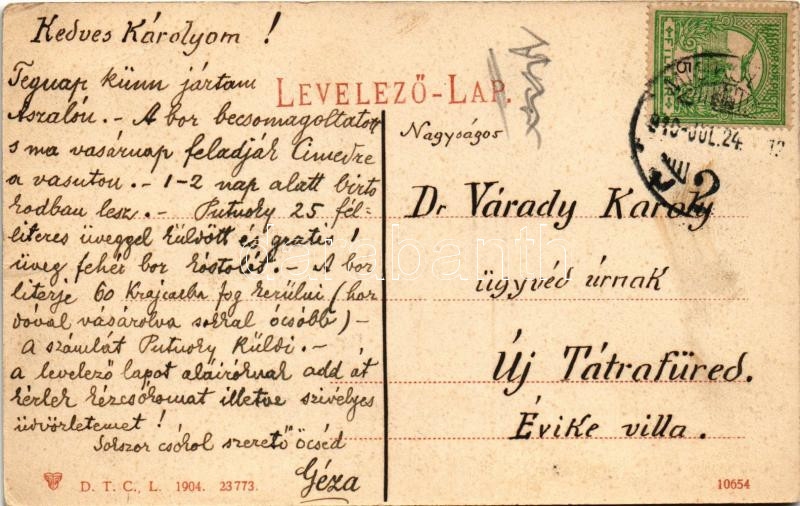 Kedves Károlyom !
Tegnap künn jártam
Aszalón. - A bor becsomagoltatott
s ma vasárnap feladják Cimedre
a vasuton. - 1-2 nap alatt birto
kodban lesz. - Putnoky 25 fél-
literes üveggel küldött és gratis !
üveg fehér bor kóstolót. - A bor
literje 60 Krajcarba fog kerülni (hor
dóval vásárolva sokkal ócsóbb) -
A számlát Putnoky küldi. -
a levelező lapot aláiróknak add át
kérlek kézcsókomat illetve szivélyes
üdvözletemet !
Sokszor csókol szerető öcséd
Géza
LEVELEZŐ-LAP.
Nagyságos
Dr Várady Karoly
ügyvéd úrnak
Új Tátrafüred.
Évike villa.
910-JUL.24.
D. T. C., L. 1904. 23773.
10654
darabanth